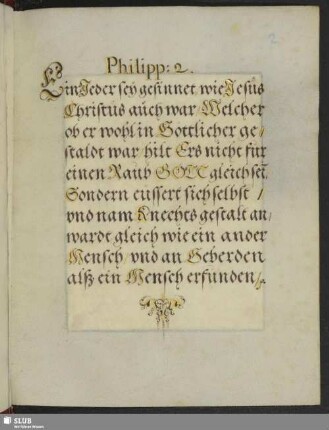 2
Philipp: 2.
Ein Jeder seÿ gesinnet wie Jesus
Christus aŭch war Welcher
ob er wohl in Gottlicher ge/
staldt war hilt Ers nicht für
einen Raub GOTT gleich sei
Sondern eussert sich selbst /
vnd nam Knechts gestalt an,
wardt gleich wie ein ander
Mensch vnd an Geberden
alsz ein Mensch erfunden/.
SLUB
Wir führen Wissen.